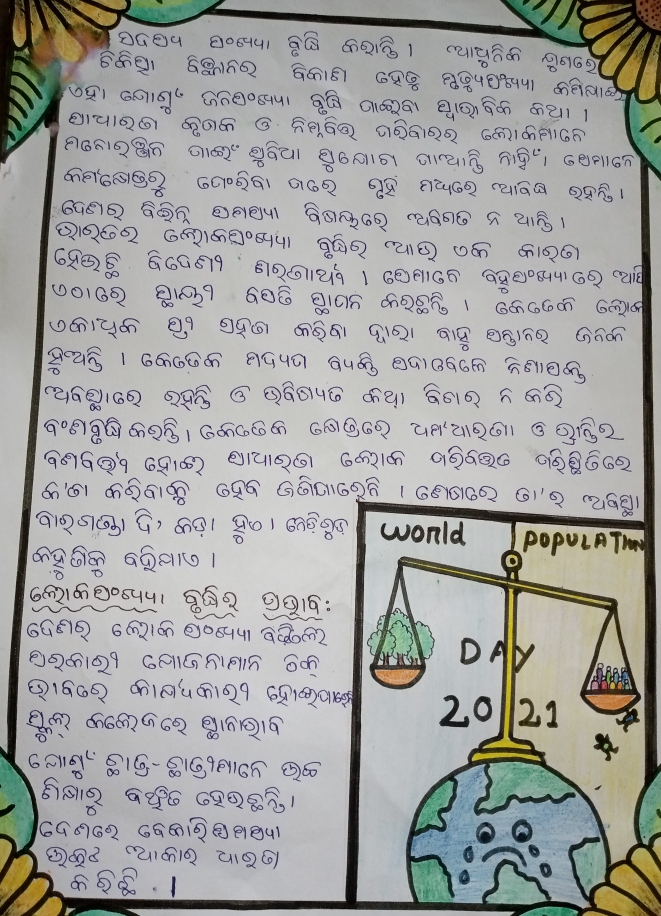 ସଦସ୍ୟ ସଂଖ୍ୟା ବୃଦ୍ଧି କରାନ୍ତି । ଆଧୁନିକ ଯୁଗରେ
ଚିକିତ୍ସା ବିଜ୍ଞାନର ବିକାଶ ହେତୁ ମୃତ୍ୟୁସଂଖ୍ୟା କମିଯାଇ
ଏହା ଯୋଗୁଁ ଜନସଂଖ୍ୟା ବୃଦ୍ଧି ପାଇବା ସ୍ୱାଭାବିକ କଥା ।
ସାଧାରଣ କୃଷକ ଓ ନିମ୍ନବିତ୍ତ ପରିବାରର ଲୋକମାନେ
ମନୋରଞ୍ଜନ ପାଇଁ ସୁବିଧା ସୁଯୋଗ ପାଆନ୍ତି ନାହିଁ । ସେମାନେ
କର୍ମକ୍ଷେତ୍ରରୁ ଫେରିବା ପରେ ଗୃହ ମଧ୍ୟରେ ଆବଦ୍ଧ ରହନ୍ତି ।
ଦେଶର ବିଭିନ୍ନ ସମସ୍ୟା ବିଷୟରେ ଅବଗତ ନ ଥାନ୍ତି ।
ଭାରତର ଲୋକସଂଖ୍ୟା ବୃଦ୍ଧିର ଆଉ ଏକ କାରଣ
ହେଉଛି ବିଦେଶୀ ଶରଣାର୍ଥୀ । ସେମାନେ ବହୁସଂଖ୍ୟାରେ ଆସି
ଏଠାରେ ସ୍ଥାୟୀ ବସତି ସ୍ଥାପନ କରୁଛନ୍ତି । କେତେକ ଲୋକ
ଏକାଧିକ ସ୍ତ୍ରୀ ଗ୍ରହଣ କରିବା ଦ୍ୱାରା ବାହୁ ସନ୍ତାନର ଜନକ
ହୁଅନ୍ତି । କେତେକ ମଦ୍ୟପ ବ୍ୟକ୍ତି ସଦାବେଳେ ନିଶାସକ୍ତ
ଅବସ୍ଥାରେ ରହନ୍ତି ଓ ଭବିଷ୍ୟତ କଥା ବିଚାର ନ କରି
ବଂଶବୃଦ୍ଧି କରନ୍ତି । କେତେକ କ୍ଷେତ୍ରରେ ଧର୍ମଧାରଣା ଓ ଭ୍ରାନ୍ତିର
ବଶବର୍ତ୍ତୀ ହୋଇ ସାଧାରଣ ଲୋକ ପରିବର୍ତ୍ତିତ ପରିସ୍ଥିତିରେ
କ'ଣ କରିବାକୁ ହେବ ଜାଣିପାରେନି । ଶେଷରେ ତା'ର ଅବସ୍ଥା
କହୁଣିକୁ ବହିଯାଏ ।
ଲୋକସଂଖ୍ୟା ବୃଦ୍ଧିର ପ୍ରଭାବ:
ଦେଶର ଲୋକ ସଂଖ୍ୟା ବଢ଼ିଲେ
ସରକାରୀ ଯୋଜନାମାନ ଠିକ୍
ଭାବରେ କାର୍ଯ୍ୟକାରୀ ହୋଇପାରେ
ସ୍କୁଲ୍ କଲେଜରେ ସ୍ଥାନାଭାବ
ଯୋଗୁଁ ଛାତ୍ର-ଛାତ୍ରୀମାନେ ଉଚ୍ଚ
ଶିକ୍ଷାରୁ ବଞ୍ଚିତ ହେଉଛନ୍ତି ।
ଦେଶରେ ବେକାରି ସମସ୍ୟା
ଉତ୍କଟ ଆକାର ଧାରଣ
କରିଛି . ।
World POPULATION
DAY
2021